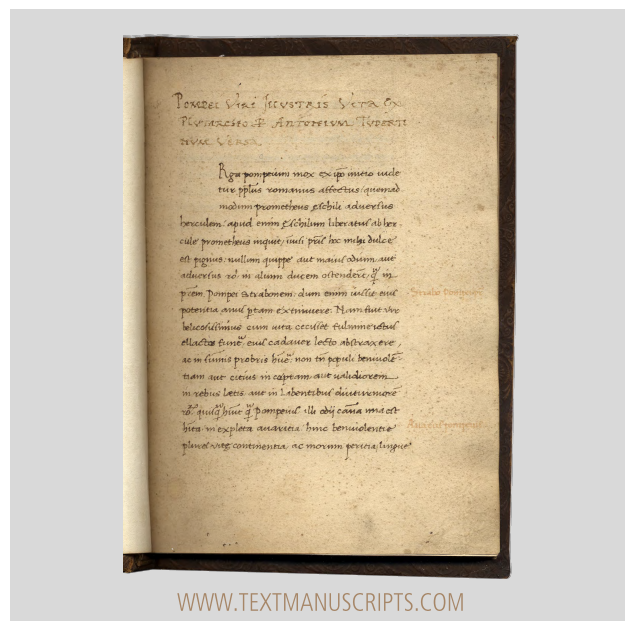 POMPEI VIRI ILLVSTRIS VITA EX
PLVTARCHO P ANTONIVM TVDERTI
NVM VERSA
Rga pompeium mox ex ipo initio uide
tur ppłus romanus affectus: quemad
modum prometheus Eschili aduersus
herculem: apud enim Eschilium liberatus ab her
cule prometheus inquit, inuisi pris hoc mihi dulce
est pignus: nullum quippe aut maius odium aut
aduersus ro. in alium ducem ostendere: q in
prem Pompei Strabonem: dum enim uixit eius
potentia armis ptam extimuere. Nam fuit uir
belicosissimus cum uita cecisset fulmine ictus
ellatos eius cadauer lecto abstraxere,
ac in summis probris non tn populi beniuole
tiam aut citius in ceptam aut ualidiorem
in rebus laetis aut in labentibus diuturniore
ro. quisq huit q Pompeius illi odij causa una est
hita inexpleta auaritia: huic beniuolentie
plures uite continentia ac morum peritia lingue
Strabo Pompeius
WWW.TEXTMANUSCRIPTS.COM